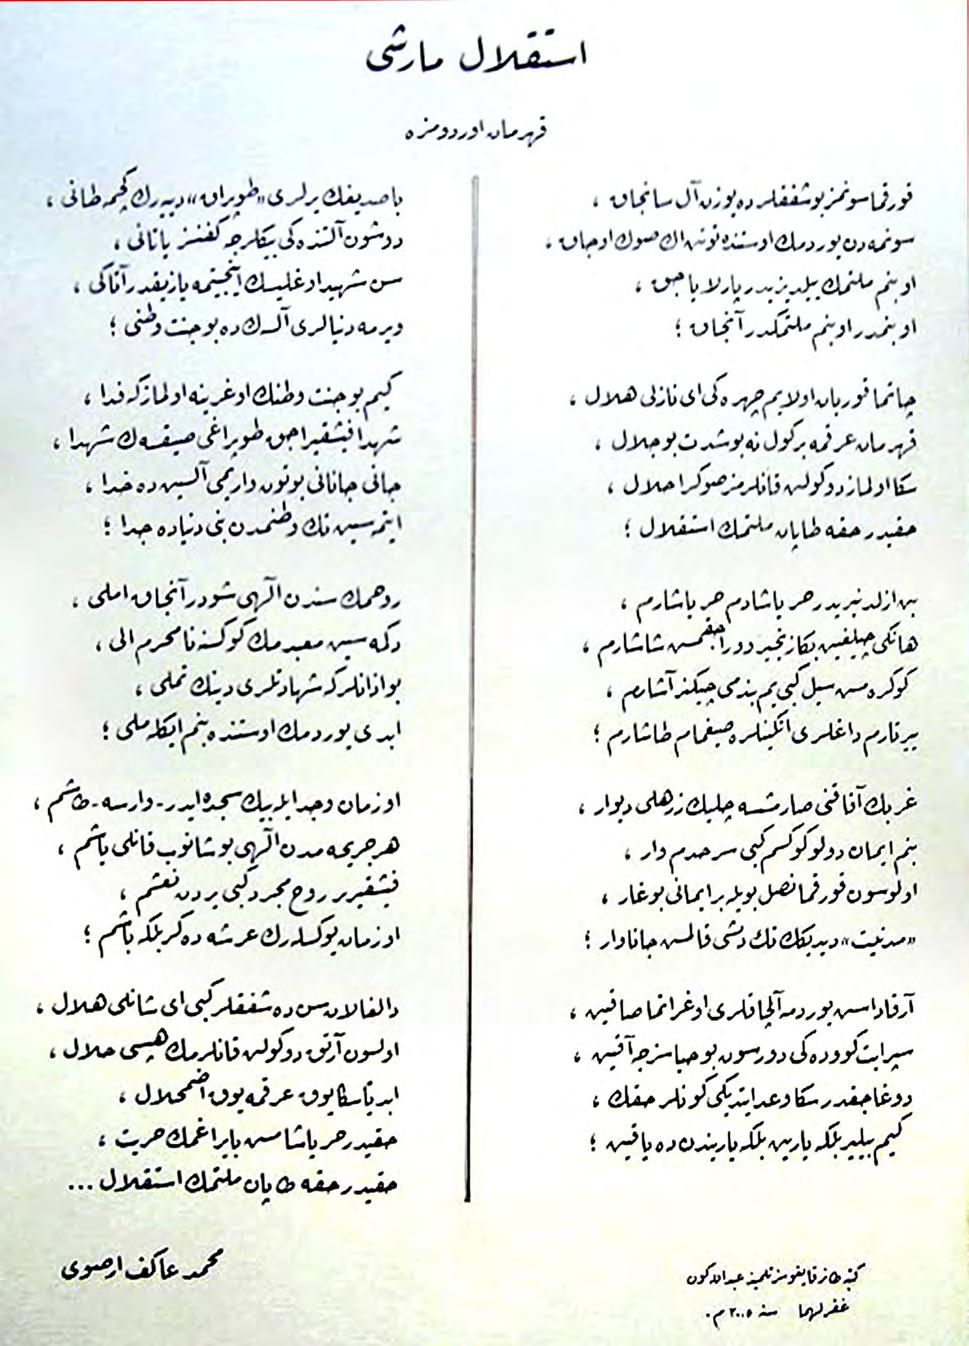 استقلال مارشی
قهرمان اوردومزه
قورقما سونمز بو شفقلرده یوزن آل سانجاق ،
سونمه‌دن یوردمك اوستنده توتن اك صوك اوجاق ،
او بنم ملتمك ییلدیزیدر پارلایاجق ،
او بنمدر او بنم ملتمكدر آنجاق ؛
چاتما قوربان اولایم چهره‌كی ای نازلی هلال ،
قهرمان عرقمه بر كول نه بو شدت بو جلال ،
سكا اولماز دوكولن قانلرمز صوكرا حلال ،
حقیدر حقه طاپان ملتمك استقلال ؛
بن ازلدنبریدر حر یاشادم حر یاشارم ،
هانكی چیلغین بكا زنجیر ووراجقمس شاشارم ،
كوكره‌مس سیل كبی‌یم بندمی چیكنر آشارم ،
ییرتارم داغلری انكینلره صیغمام طاشارم ؛
غربك آفاقنی صارمشسه چلیك زرهلی دیوار ،
بنم ایمان دولو كوكسم كبی سرحدم وار ،
اولوسون قورقما نصل بویله بر ایمانی بوغار ،
«مدنیت» دیدیكك تك دیشی قالمس جاناوار ؛
آرقاداس یوردمه آلچاقلری اوغراتما صاقین ،
سپر ایت كووده‌كی دورسون بو حیاسزجه آقین ،
دوغاجقدر سكا وعد ایتدیكی كونلر حقك ،
كیم بیلیر بلكه یارین بلكه یاریندن ده یاقین ؛
باصدیغك یرلری «طوپراق» دییه‌رك كچمه طانی ،
دوشون آلتنده‌كی بیكلرجه كفنسز یاتانی ،
سن شهید اوغلیسك اینجیتمه یازیقدر آتاكی ،
ویرمه دنیالری آلسه‌ك ده بو جنت وطنی ؛
كیم بو جنت وطنك اوغرینه اولماز كه فدا ،
شهدا فیشقیراجق طوپراغی صیقسه‌ك شهدا ،
جانی جانانی بوتون واریمی آلسین ده خدا ،
ایتمه‌سین تك وطنمدن بنی دنیاده جدا ؛
روحمك سندن الهی شودر آنجاق املی ،
دكمه‌سین معبدمك كوكسنه نامحرم الی ،
بو اذانلر كه شهادتلری دینك تملی ،
ابدی یوردمك اوستنده بنم ایكله‌ملی ؛
او زمان وجد ایله بیك سجده ایدر - وارسه - طاشم ،
هر جریحه‌مدن الهی بوشانوب قانلی یاشم ،
فیشقیرر روح مجرد كبی یردن نعشم ،
او زمان یوكسله‌رك عرشه دكر بلكه باشم ؛
دالغالان سن ده شفقلر كبی ای شانلی هلال ،
اولسون آرتق دوكولن قانلرمك هپسی حلال ،
ابدیا سكا یوق عرقمه یوق اضمحلال ،
حقیدر حر یاشامس بایراغمك حریت ،
حقیدر حقه طاپان ملتمك استقلال ...
محمد عاكف ارصوی
عبدالله كون
غفر لهما سنه ٢٠٠٥ م.